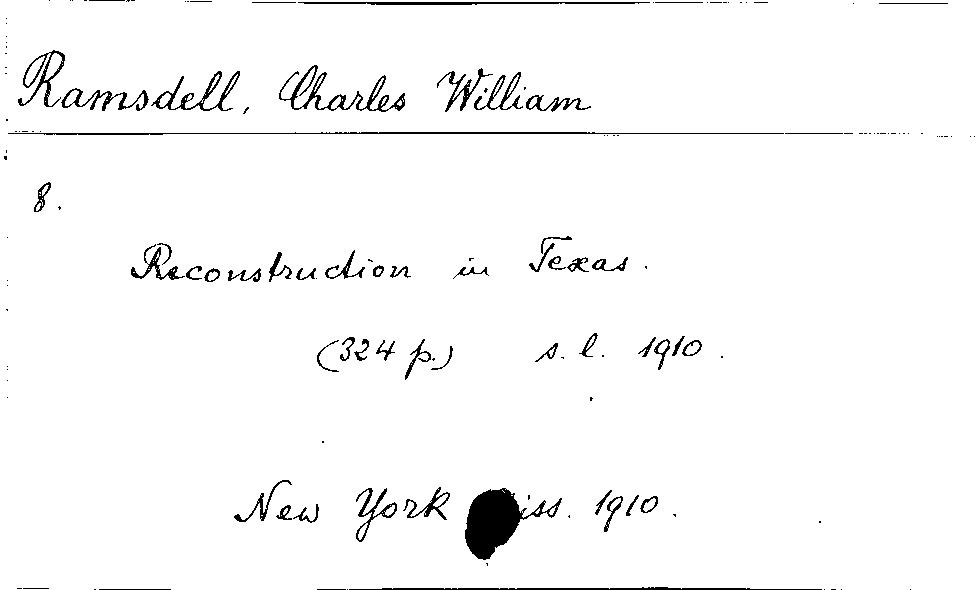 Ramsdell, Charles William
8.
Reconstruction in Texas.
(324 p.) s. l. 1910.
New York iss. 1910.